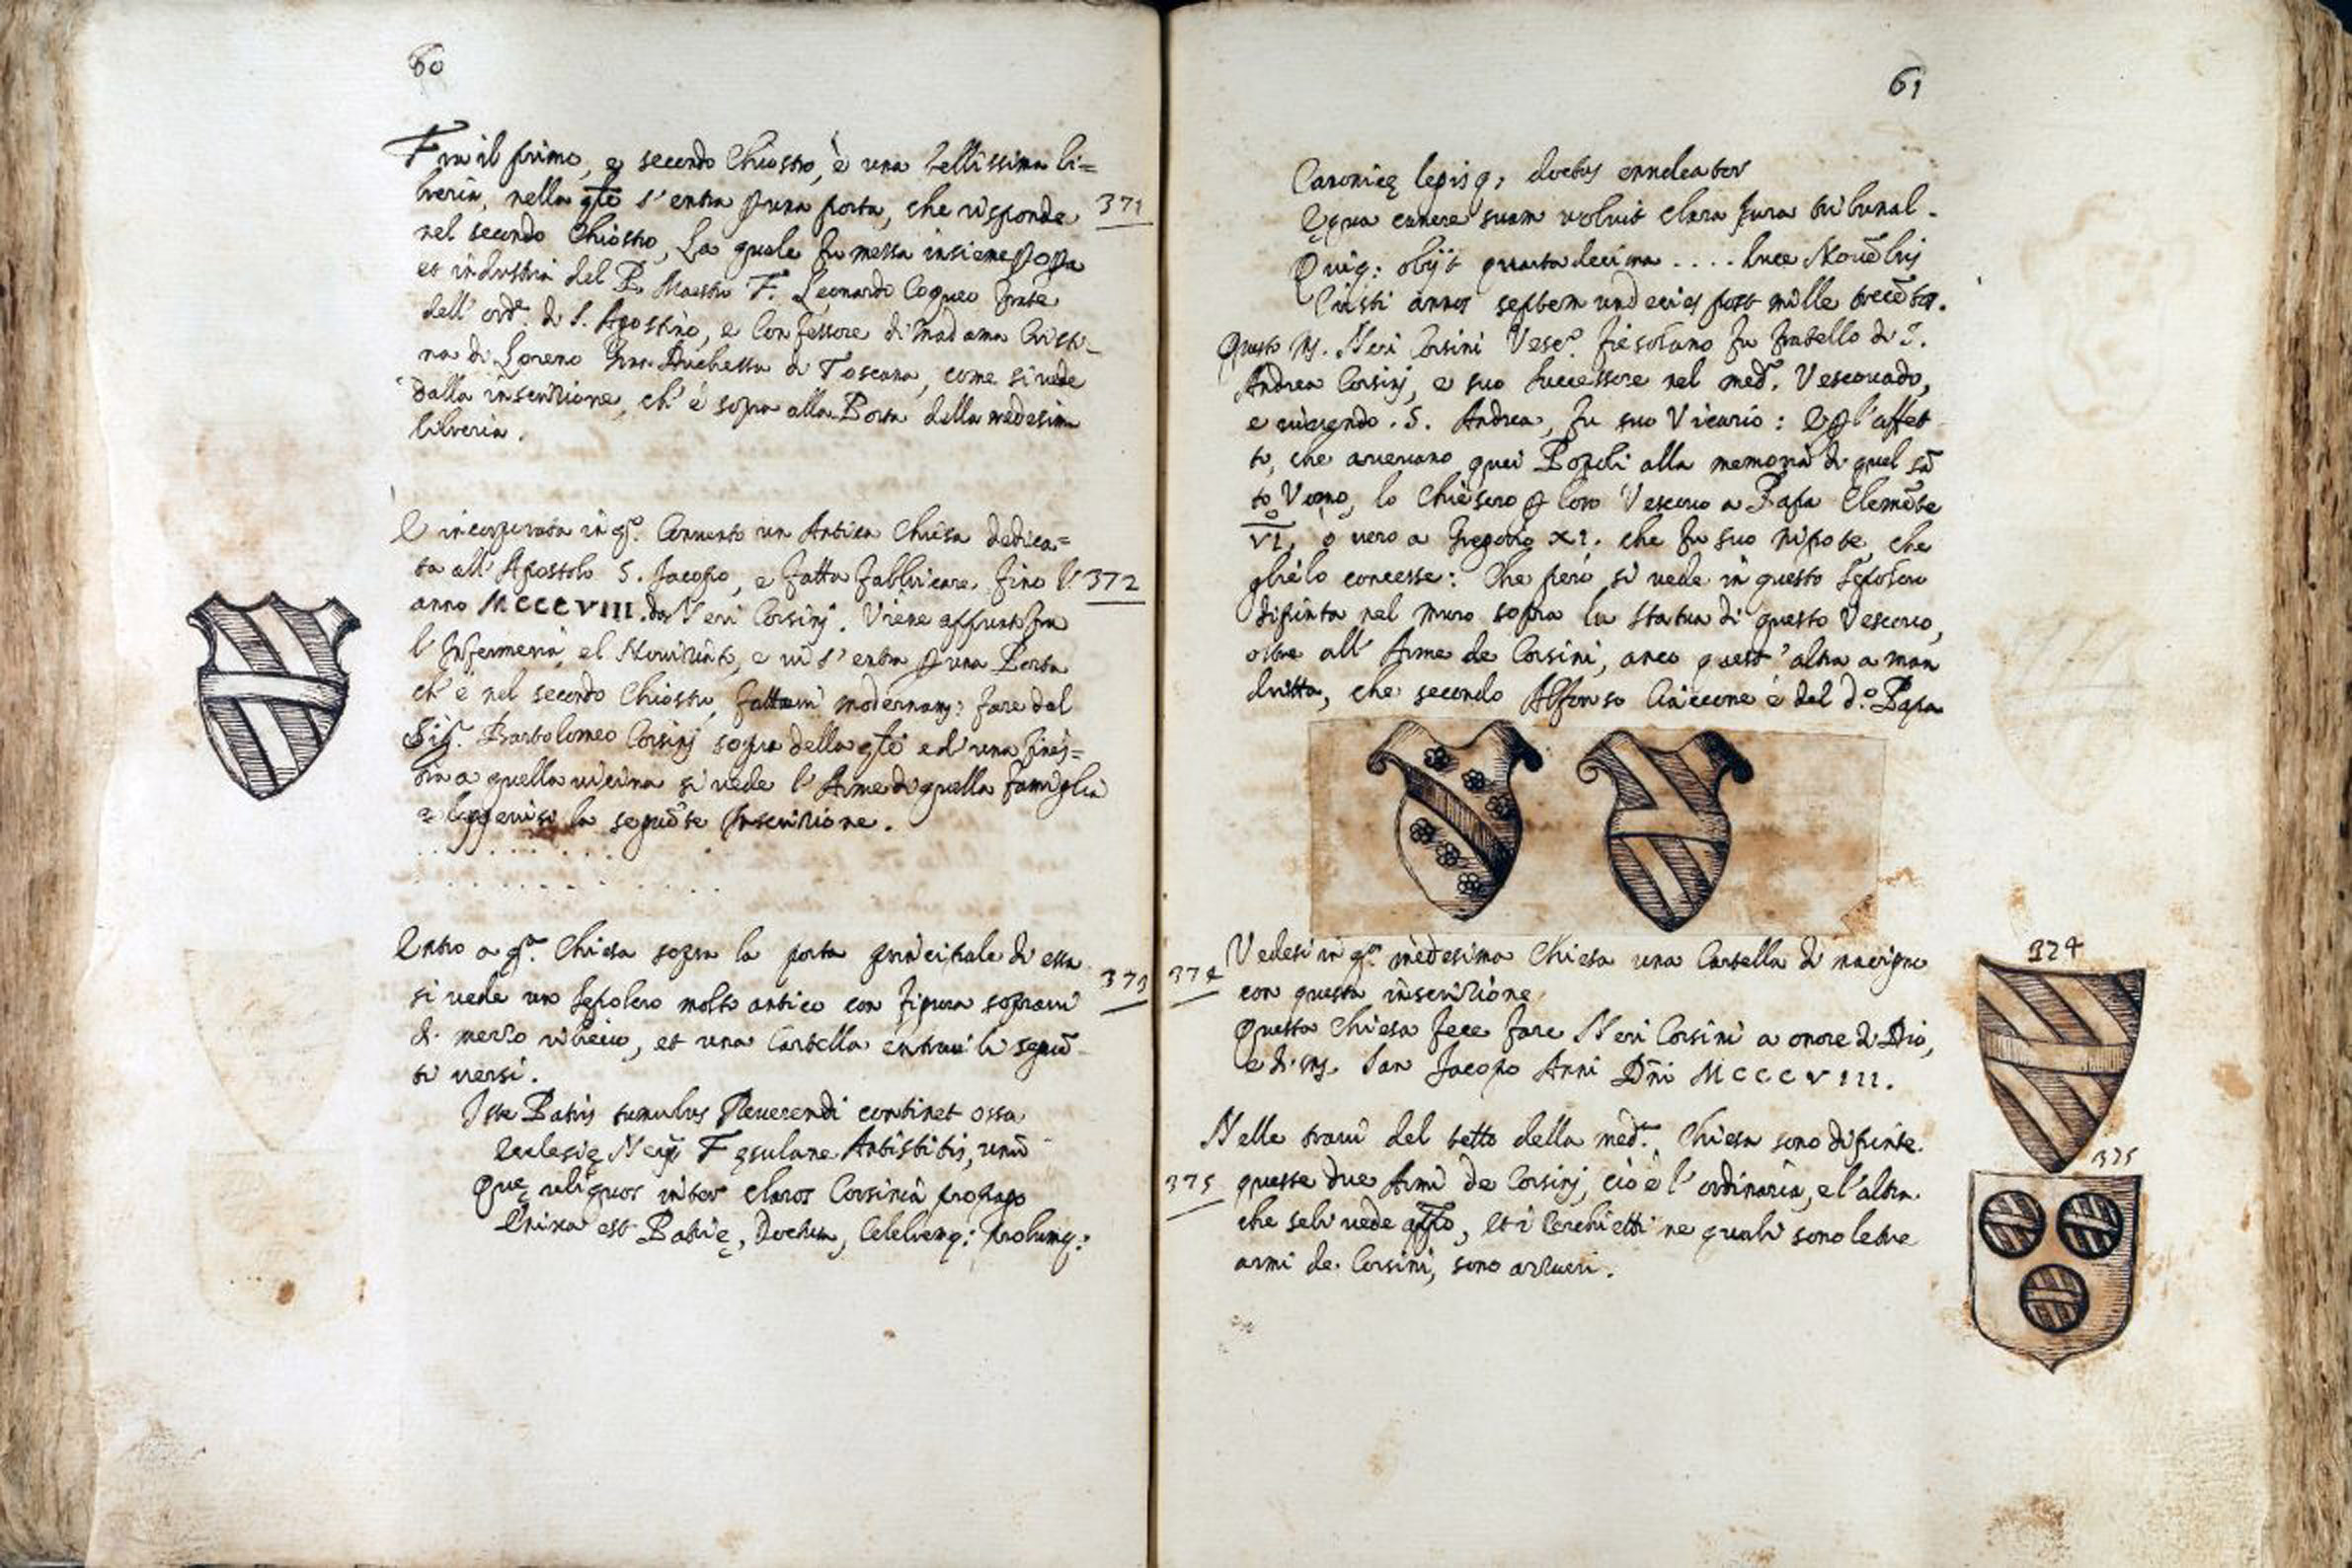 60
Fra il primo, e secondo Chiostro, è una bellissima li=
breria, nella qle s'entra p una porta, che risponde 371
nel secondo Chiostro, La quale fu messa insieme p opa
et industria del P. Maestro F. Leonardo Coqueo frate
dell' ord.e di S. Agostino, e Confessore di Madama Cristi-
na di Loreno Gran Duchessa di Toscana, come si vede
dalla inscrizione, ch' è sopra alla Porta della medesima
libreria.
È incorporata in q.o Convento un Antica Chiesa dedica=
ta all' Apostolo S. Jacopo, e fatta fabbricare fino l' 372
anno MCCCVIII. da Neri Corsinj. Viene appunto fra
l' Infermeria, el Noviziato, e vi s' entra p una Porta
ch' è nel secondo Chiostro, fattavi modernamj: fare dal
Sig.r Bartolomeo Corsinj sopra della qle ed' una fines=
tra a quella vicina si vede l' Arme di quella famiglia
e leggevisi la seguēte Inscrizione.
. . . . . . . . . .
. . . . . . . . . . . . .
Entro a q.a Chiesa sopra la porta principale di essa
si vede un Sepolcro molto antico con figura sopravi 373
di mezzo rilievo, et una Cartella entrovi li seguē-
ti versi.
Iste Patris tumulus Reuerendi continet ossa
Ecclesię Nerij Fęsulane Antistitis, unū
Quę reliquos inter claros Corsinia propago
Enixa est Patrię, Doctum, Celebremq: probumq:
61
Canonicę legisq; doctus enucleator
Equa canere suam voluit clara Jura tribunal.
Quiq: obijt quartadecima .... luce Novēbris
Cristi annos septem undecies post mille trecētos.
Questo M. Neri Corsini Vesc.o Fiesolano fu fratello di S.
Andrea Corsinj, e suo Successore nel med.o Vescovado,
e vivendo. S. Andrea, fu suo Vicario: E p l'affet
to, che avevano quei Popoli alla memoria di quel sā
to Vomo, lo chiesero p loro Vescovo a Papa Clemēte
VI, ò vero a Gregorio XI. che fu suo nipote, che
glielo concesse: Che però si vede in questo Sepolcro
dipinta nel muro sopra la statua di questo Vescovo,
oltre all' Arme de Corsini, anco quest' altra a man
dritta, che secondo Alfonso Ciaccone è del d.o Papa
Vedesi in q.a medesima Chiesa una Cartella di macigno 374
con questa inscrizione
Questa Chiesa fece fare Neri Corsini a onore di Dio,
e di mr. San Jacopo Anni Dn̄i MCCCVIII.
Nelle travi del tetto della med.a Chiesa sono dipinte.
375 queste due Armi de Corsinj, cio è l' ordinaria, e l'altra.
che seli vede app̄o, Et i Cerchietti ne quali sono le tre
armi de Corsini, sono azzurri.
324
375